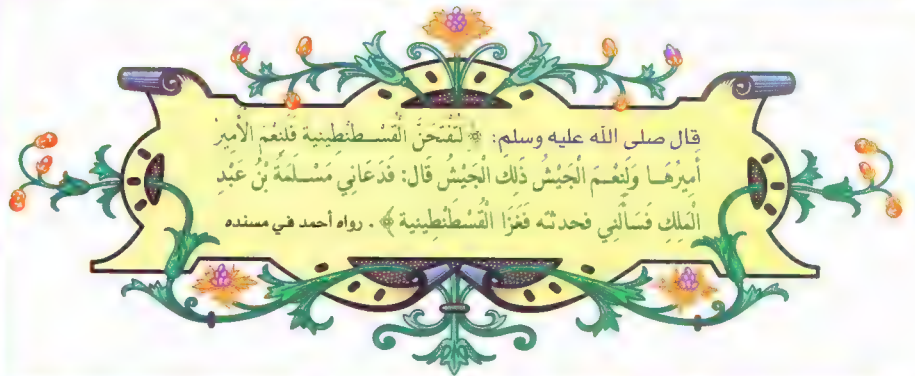 قال صلى الله عليه وسلم: ﴿ لَتُفْتَحَنَّ الْقُسْطَنْطِينِية فَلَنْعْمَ الأَمِيرُ
أَمِيرُهَا وَلَنِعْمَ الْجَيْشُ ذَلِكَ الْجَيْشُ قَالَ: فَدَعَانِي مَسْلَمَةُ بْنُ عَبْدِ
الْمَلِكِ فَسَأَلَنِي فحدثته فَغَزَا الْقُسْطَنْطِينِية ﴾ . رواه أحمد في مسنده